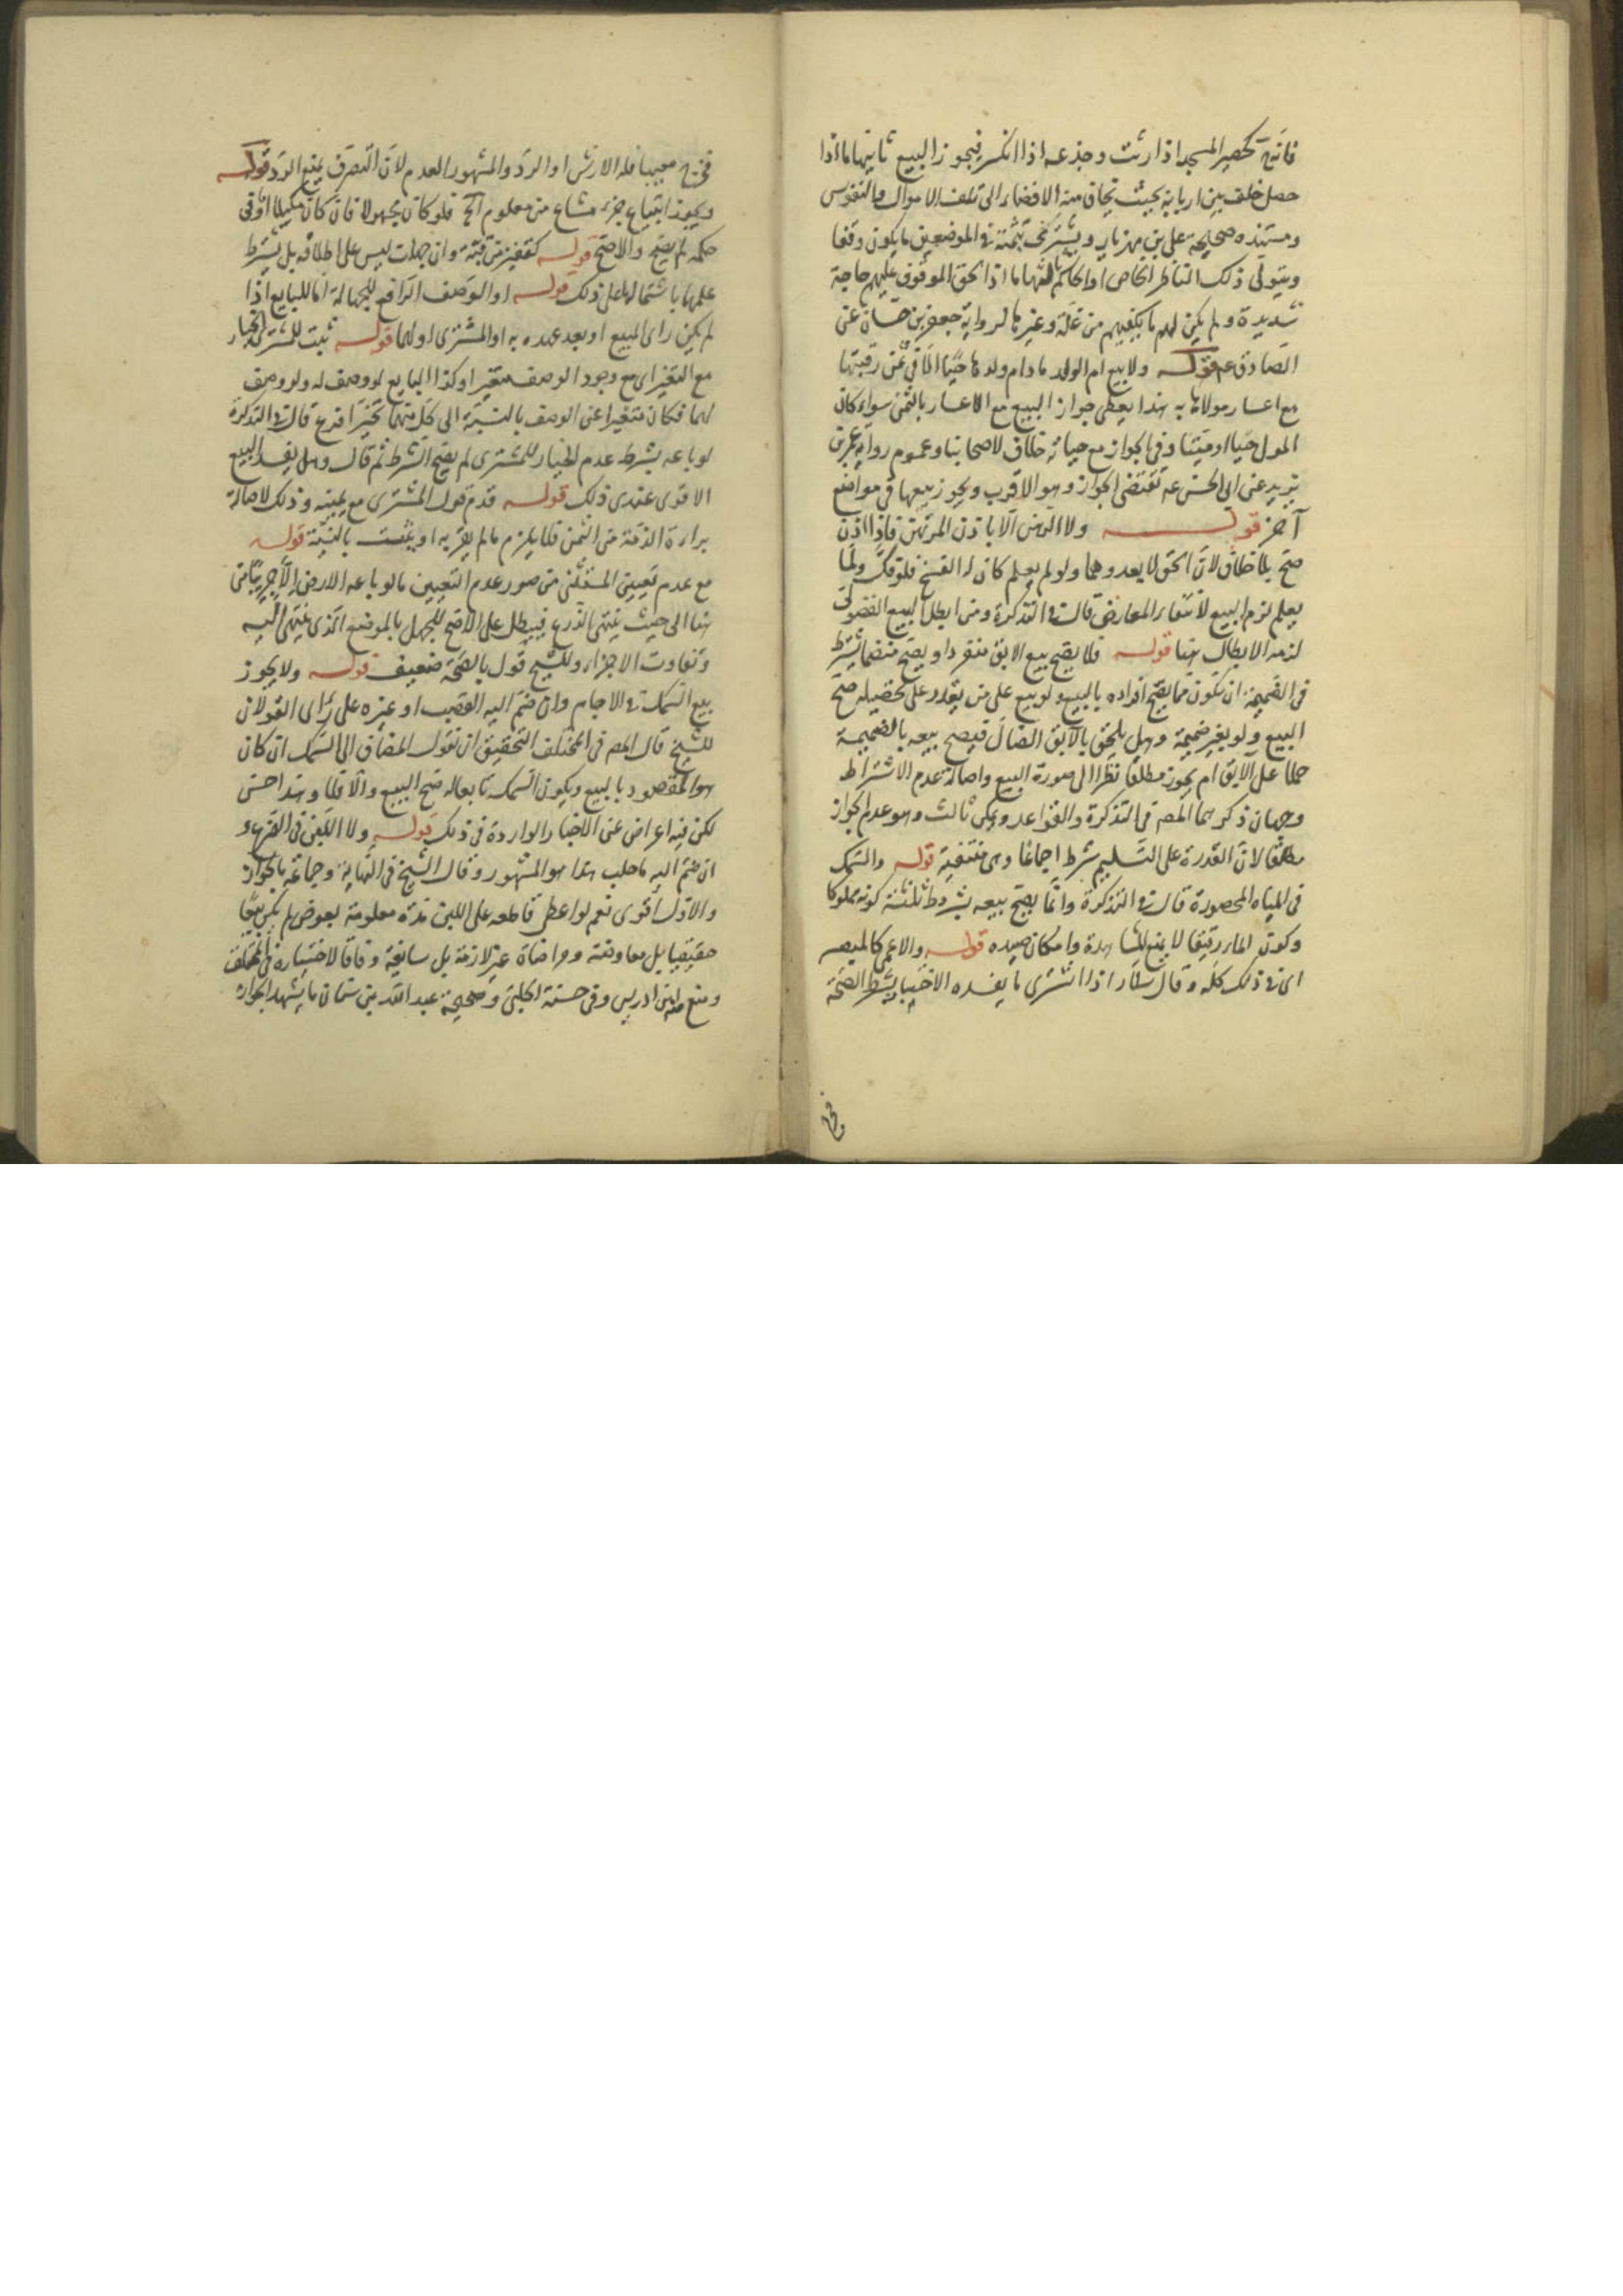 فانه كحصير المسجد اذا رثت وجذعه اذا انكسر فيجوز البيع ثانيها ما اذا
حصل خلف بين اربابه بحيث يخاف منه الافضاء الى تلف الاموال والنفوس
ومستنده صحيحة على بن مهزيار ويشترى بثمنه فى الموضعين ما يكون وقفا
ويتولى ذلك الناظر الخاص او الحاكم ثالثها ما اذا لحق الموقوف عليهم حاجة
شديدة ولم يكن لهم ما يكفيهم من غلة وغيرها لرواية جعفر بن حسان عن
الصادق ع قوله ولا بيع ام الولد ما دام ولدها حيا الا فى ثمن رقبتها
مع اعسار مولاها به هذا يعطى جواز البيع مع الاعسار بالثمن سواء كان
المولى حيا او ميتا وفى الجواز مع حياته خلاف لاصحابنا وعموم رواية عمر بن
يزيد عن ابى الحسن ع تقتضى الجواز وهو الاقرب ويجوز بيعها فى مواضع
آخر قوله ولا الرهن الا باذن المرتهن فاذا اذن
صح بلا خلاف لان الحق لا يعدوهما ولو لم يعلم كان له الفسخ فلو فك ولما
يعلم لزم البيع لانتفاء المعارض قال فى التذكرة ومن ابطل بيع الفضولى
لزمه الابطال هنا قوله فلا يصح بيع الابق منفردا ويصح منضما يشترط
فى الضميمة ان تكون مما يصح افراده بالبيع ولو بيع على من يقدر على تحصيله صح
البيع ولو بغير ضميمة وهل يلحق بالآبق الضال فيصح بيعه بالضميمة
حملا على الآبق ام يجوز مطلقا نظرا الى صورة البيع واصالة عدم الاشتراط
وجهان ذكرهما المصه فى التذكرة والقواعد وحكى ثالث وهو عدم الجواز
مطلقا لان القدرة على التسليم شرط اجماعا وهى منتفية قوله والسمك
فى المياه المحصورة قال فى التذكرة وانما يصح بيعه بشروط ثلثة كونه مملوكا
وكون الماء رقيقا لا يمنع المشاهدة وامكان صيده قوله والاعمى كالمبصر
اى فى ذلك كله وقال سلار اذا اشترى ما يفسده الاختبار بشرط الصحة
فخرج
فخرج معيبا فله الارش او الرد والمشهور العدم لان التصرف يمنع الرد قوله
ويجوز ابتياع جزء مشاع من معلوم الخ فلو كان مجهولا فان كان مكيلا او فى
حكمه لم يصح والا صح قوله كقفيز من قبة وان جهلت ليس على اطلاقه بل يشترط
علمها باشتمالها على ذلك قوله او الوصف الرافع للجهالة اما للبايع اذا
لم يكن راى المبيع او بعد عهده به او المشترى او لهما قوله ثبت للمشترى الخيار
مع التغير اى مع وجود الوصف متغيرا وكذا البايع لو وصف له ولو وصف
لهما فكان متغيرا عن الوصف بالنسبة الى كل منهما تخيرا فرع قال فى التذكرة
لو باعه بشرط عدم الخيار للمشترى لم يصح الشرط ثم قال وهل يفسد البيع
الاقوى عندى ذلك قوله قدم قول المشترى مع يمينه وذلك لاصالة
براءة الذمة من الثمن فلا يلزم ما لم يقر به او يثبت بالبينة قوله
مع عدم تعيين المستثنى من صور عدم التعيين ما لو باعه الارض الا جريبا من
هنا الى حيث ينتهى الذرع فيبطل على الاصح للجهل بالموضع الذى ينتهى اليه
وتفاوت الاجزاء وللشيخ قول بالصحة ضعيف قوله ولا يجوز
بيع السمك فى الاجام وان ضم اليه القصب او غيره على راى القولان
للشيخ قال المصه فى المختلف التحقيق ان نقول المضاف الى السمك ان كان
هو المقصود بالبيع ويكون السمك تابعا له صح البيع والا فلا وهذا حسن
لكن فيه اعراض عن الاخبار الواردة فى ذلك قوله ولا اللبن فى الضرع و
ان ضم اليه ما حلب هذا هو المشهور وقال الشيخ فى النهاية وجماعة بالجواز
والاول اقوى نعم لو اعطى قاطعه على اللبن مدة معلومة بعوض لم يكن بيعا
حقيقيا بل معاوضة ومراضاة غير لازمة بل سائغة وفاقا لاختياره فى المختلف
ومنع منه ابن ادريس وفى حسنة الحلبى وصحيحة عبد الله بن سنان ما يشهد بالجواز